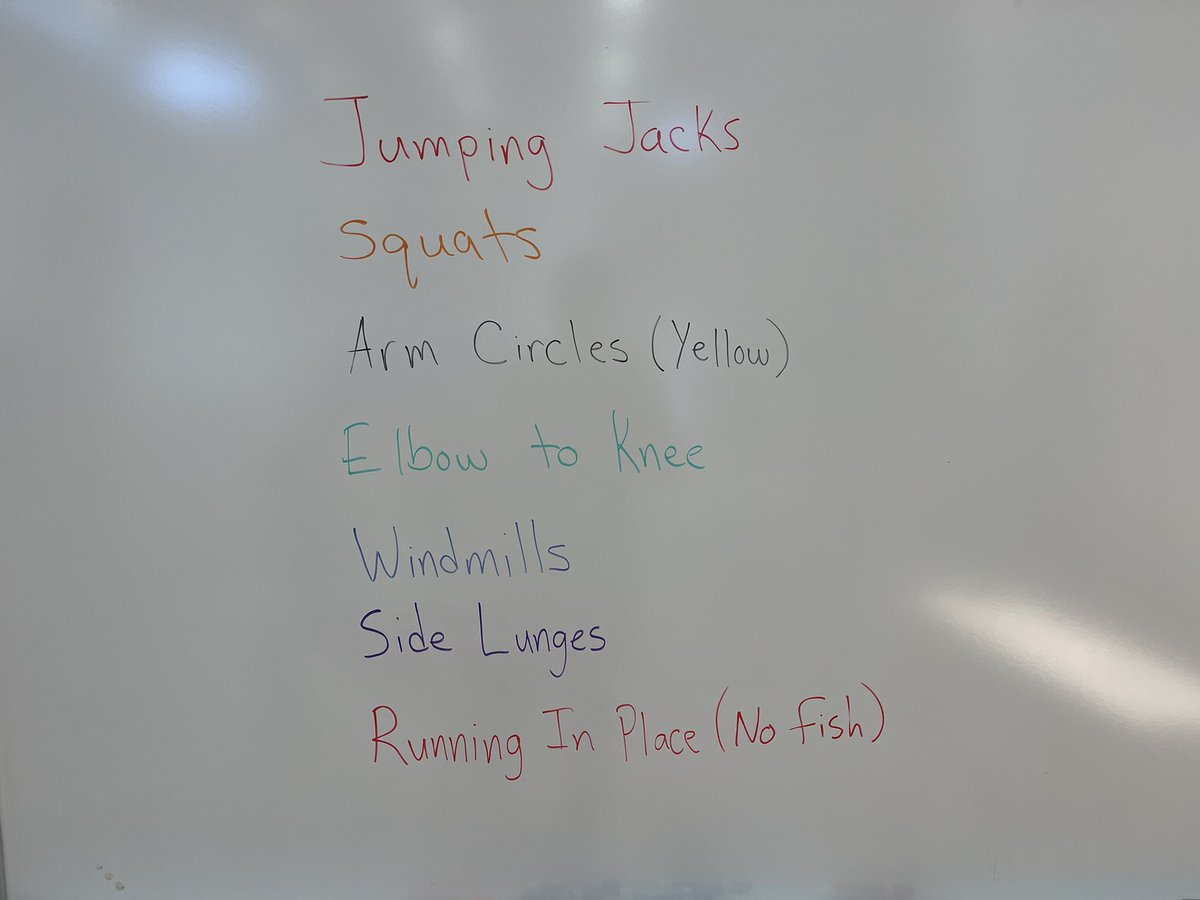 Jumping Jacks
Squats
Arm Circles (Yellow)
Elbow to Knee
Windmills
Side Lunges
Running In Place (No fish)